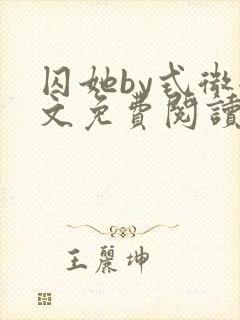 囚她by式微
文免費閱讀
王麗坤